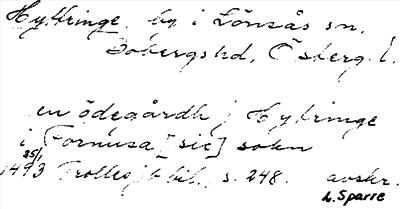 Hyttringe. by i Lönsås sn.
Bobergs hd, Östergl.
en ödegårdh j Hytringe
i Fornusa [sic] sokn
25/1
1493 Trolles jb bil., s. 248. avskr.
L. Sparre